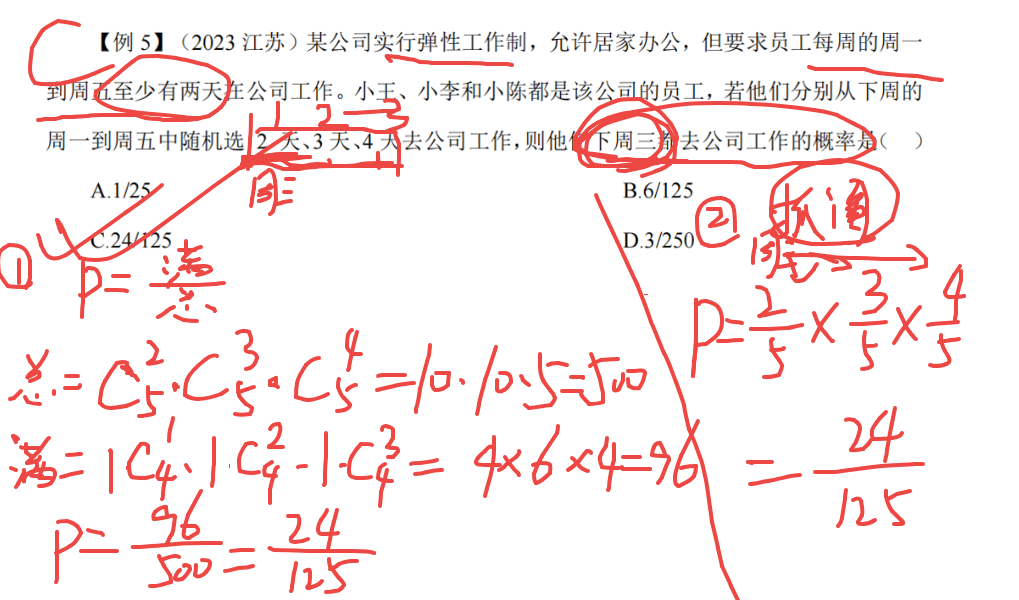 【例 5】（2023 江苏）某公司实行弹性工作制，允许居家办公，但要求员工每周的周一
到周五至少有两天在公司工作。小王、小李和小陈都是该公司的员工，若他们分别从下周的
周一到周五中随机选 2 天、3 天、4 天去公司工作，则他们下周三都去公司工作的概率是（ ）
1 2 3
周三
A.1/25
B.6/125
C.24/125
D.3/250
① P=满/总
总=C₅²·C₅³·C₅⁴=10·10·5=500
满=1C₄¹·1·C₄²·1·C₄³=4×6×4=96
P=96/500=24/125
②
周三
P=2/5×3/5×4/5
=24/125